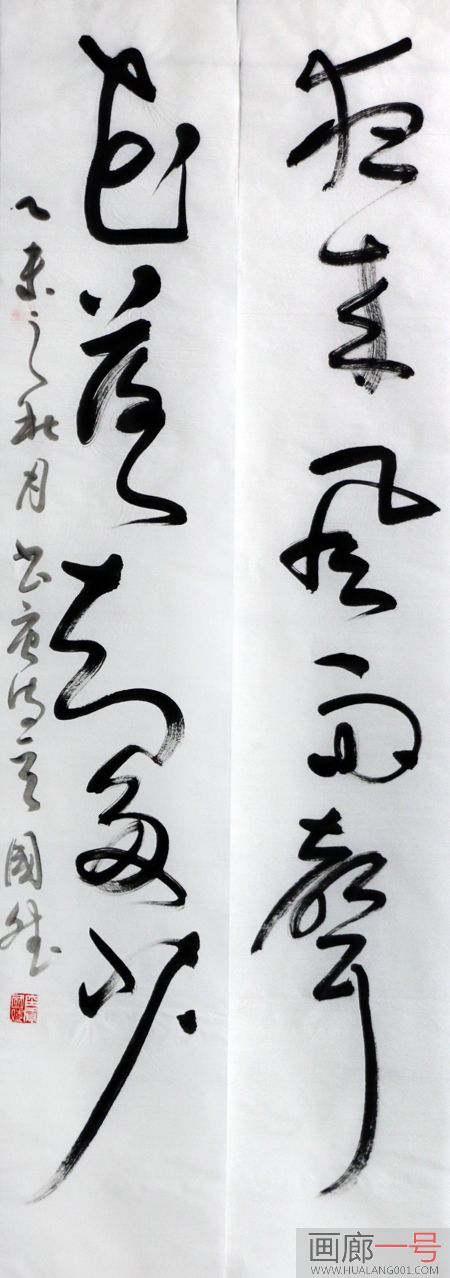 夜来風雨聲
花落知多少
乙未之秋月書唐詩 國
画廊一号
WWW.HUALANG001.COM